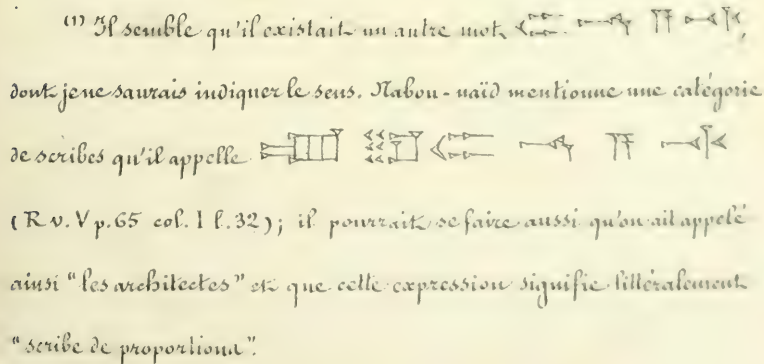 (1) Il semble qu'il existait un autre mot 𒈪 𒈾 𒀀 𒋾,
dont je ne saurais indiquer le sens. Nabou-naïd mentionne une catégorie
de scribes qu'il appelle 𒁾 𒊬 𒈪 𒈾 𒀀 𒋾
(R v. V p. 65 col. I l. 32); il pourrait se faire aussi qu'on ait appelé
ainsi "les architectes" et que cette expression signifie littéralement
"scribe de proportions".